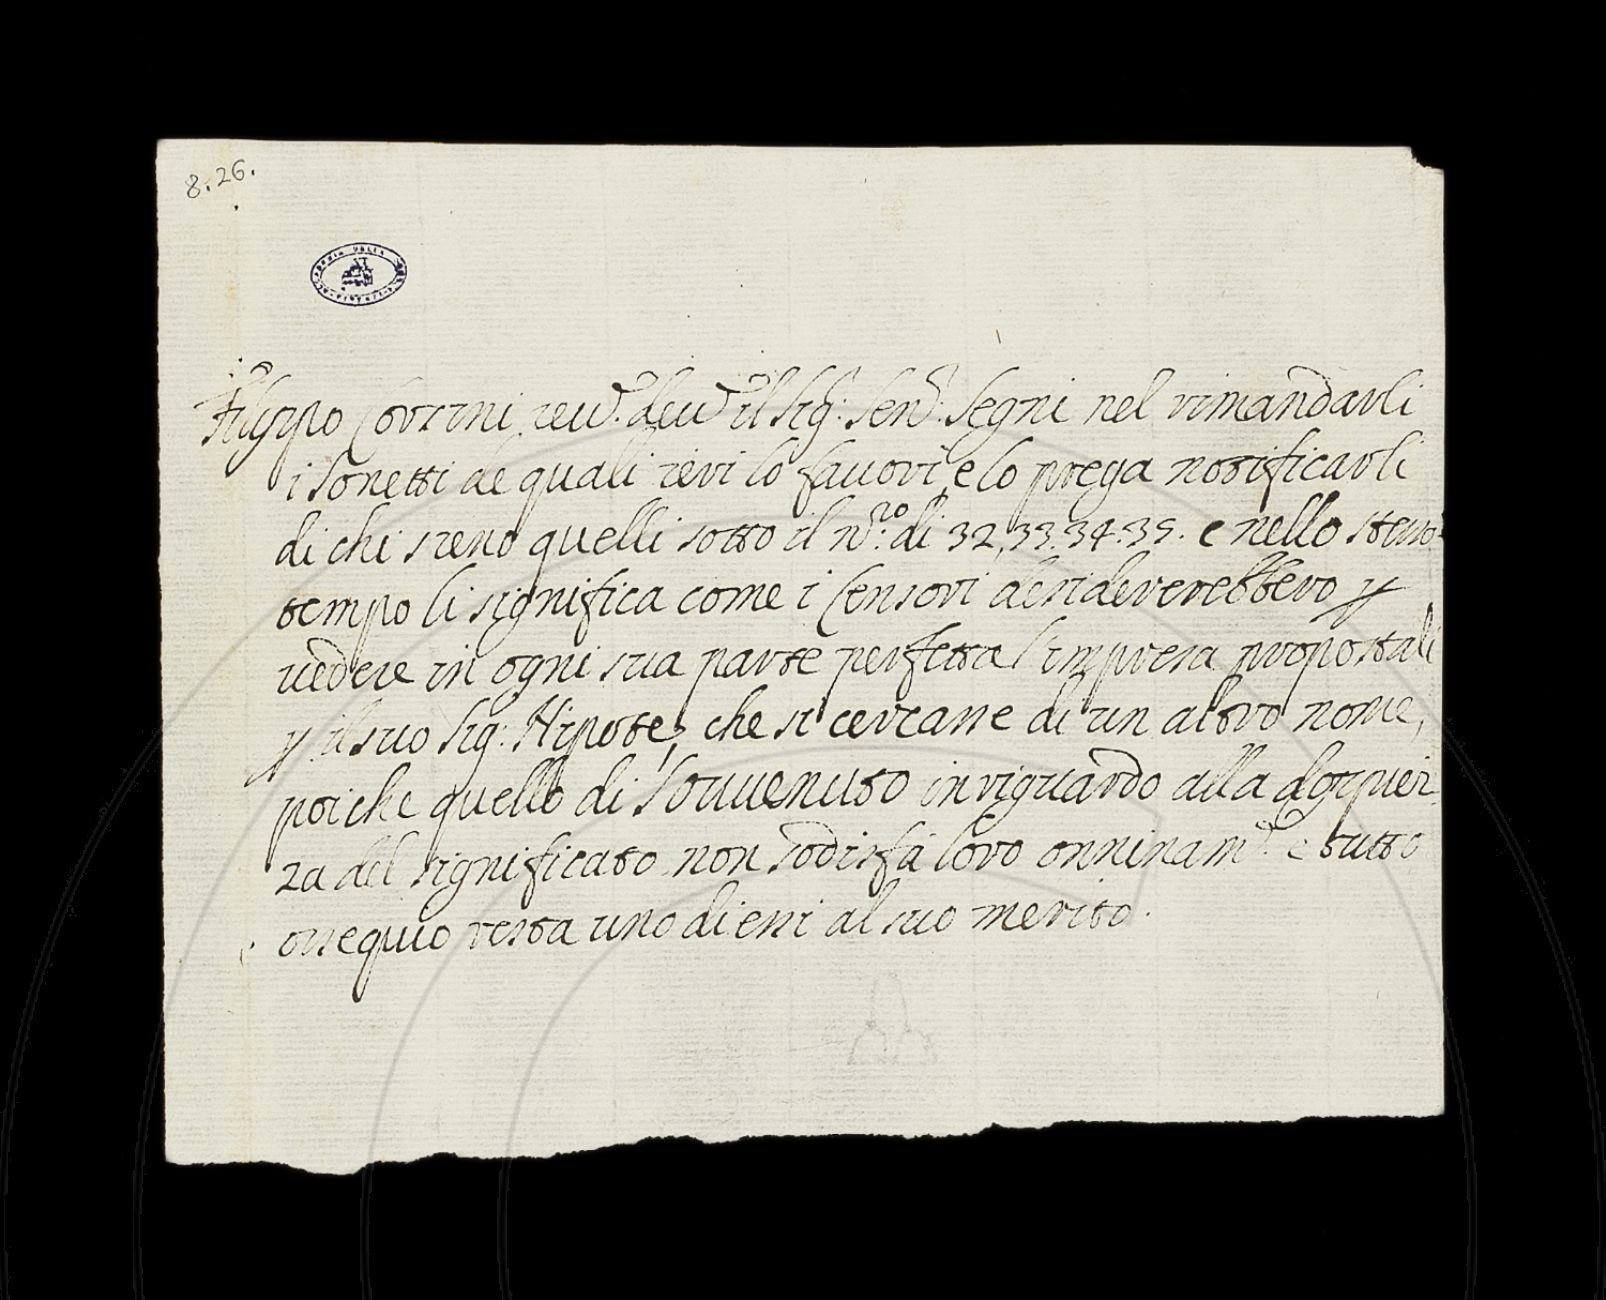 8.26.
Filippo Corsini rev.e dev.e il Sig:r Sen.r Segni nel rimandarli
i Sonetti de quali ieri lo favorì, e lo prega notificarli
di chi sieno quelli sotto il n.ro di 32, 33. 34. 35. e nello stesso
tempo li significa come i Censori desidererebbero p
vedere in ogni sua parte perfetta l'impresa propostali
p il suo Sig: Nipote, che si cercasse di un altro nome,
poiche quello di Souuenuto in riguardo alla doppiez
za del significato non sodisfà loro onninam.e e tutto
ossequio resta uno di essi al suo merito.